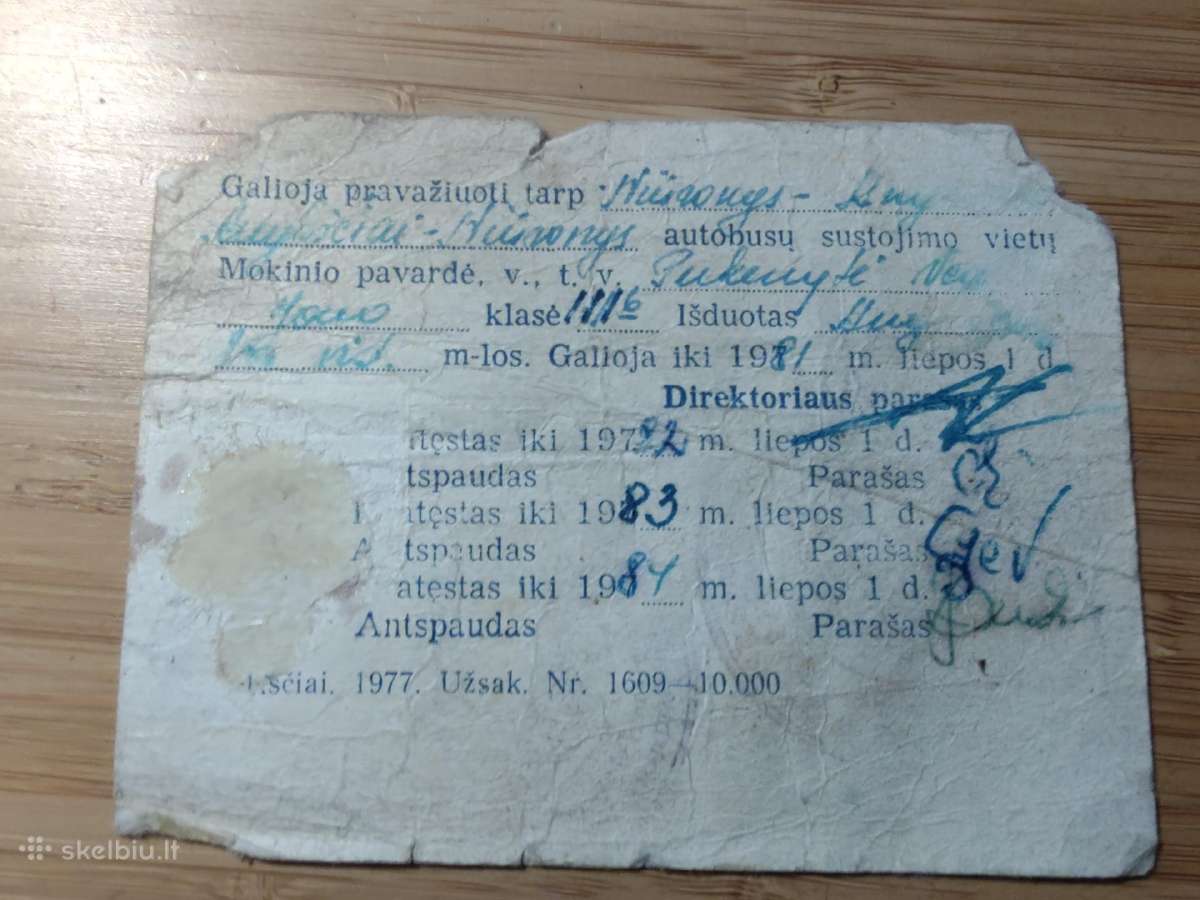 Galioja pravažiuoti tarp Niūronys - Any
Anykščiai - Niūronys autobusų sustojimo vietų
Mokinio pavardė, v., t. v. Pukenytė
Jono klasė Išduotas Any
vid. m-los. Galioja iki 1981 m. liepos 1 d.
Direktoriaus parašas
atęstas iki 1982 m. liepos 1 d.
tspaudas Parašas
atęstas iki 1983 m. liepos 1 d.
Antspaudas Parašas
atęstas iki 1984 m. liepos 1 d.
Antspaudas Parašas
ščiai. 1977. Užsak. Nr. 1609—10.000
skelbiu.lt